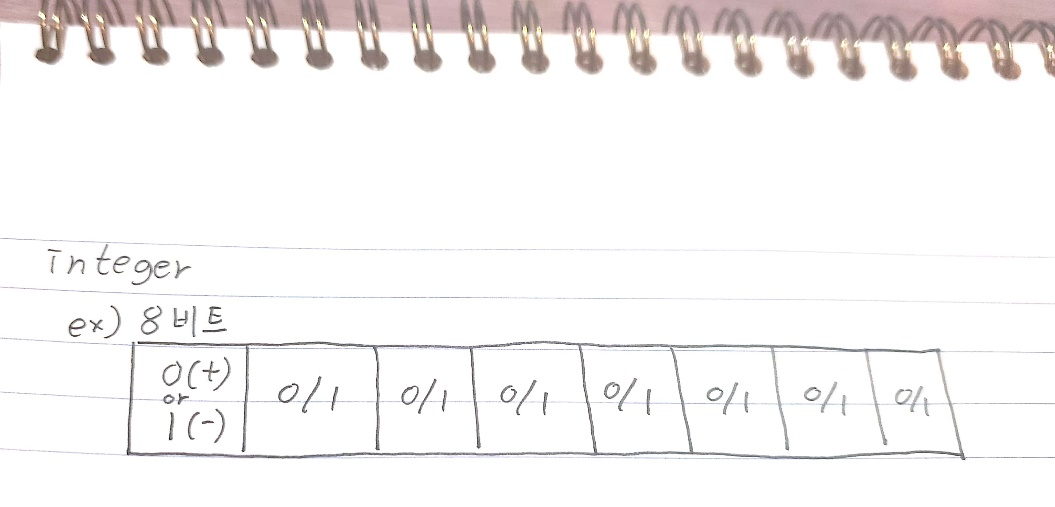 integer
ex) 8비트
0(+) or 1(-) 0/1 0/1 0/1 0/1 0/1 0/1 0/1